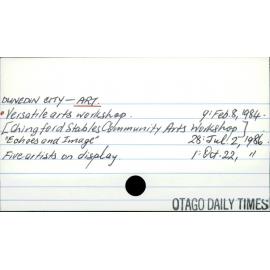 DUNEDIN CITY — ART.
• Versatile arts workshop. 9: Feb. 8, 1984.
[Chingford Stables Community Arts Workshop]
"Echoes and Image" 28: Jul. 2, 1986.
Five artists on display 1: Oct. 22, "
OTAGO DAILY TIMES